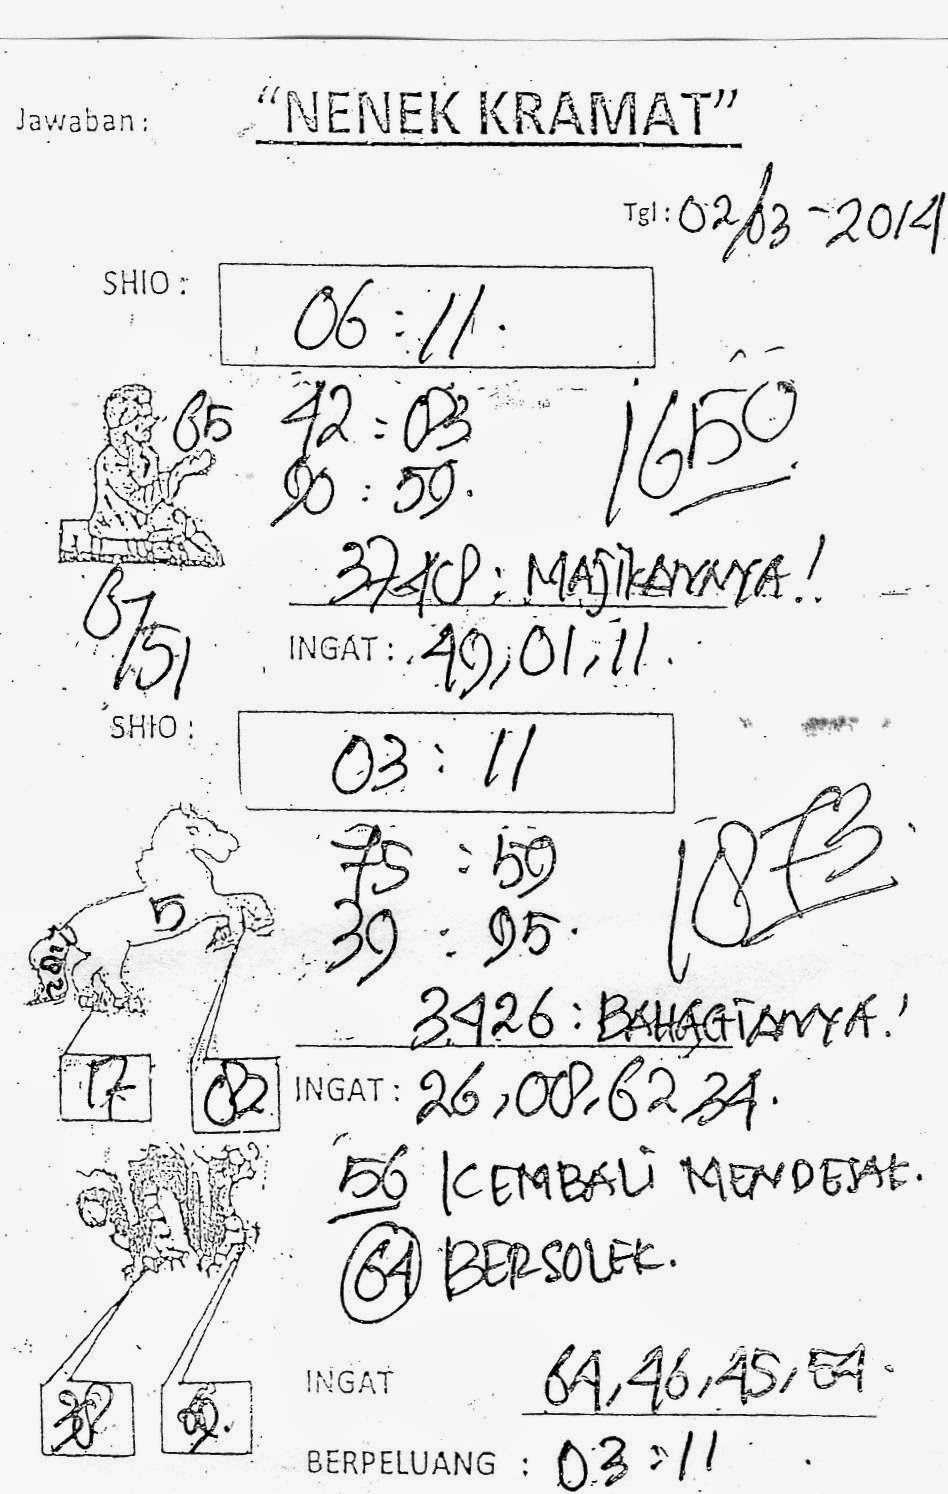 Jawaban :
"NENEK KRAMAT"
Tgl : 02/03-2014
SHIO :
06 : 11.
65
42 : 03
1650
90 : 59.
3748 : MAJIKANNYA!
67/51
INGAT : 49, 01, 11.
SHIO :
03 : 11
75 : 59
1873
5
39 : 95.
3426 : BAHAGIANYA!
17
02
INGAT : 26, 08, 62, 34.
56 KEMBALI MENDESAK.
64 BERSOLEK.
INGAT
64, 46, 45, 54.
38
BERPELUANG : 03 : 11